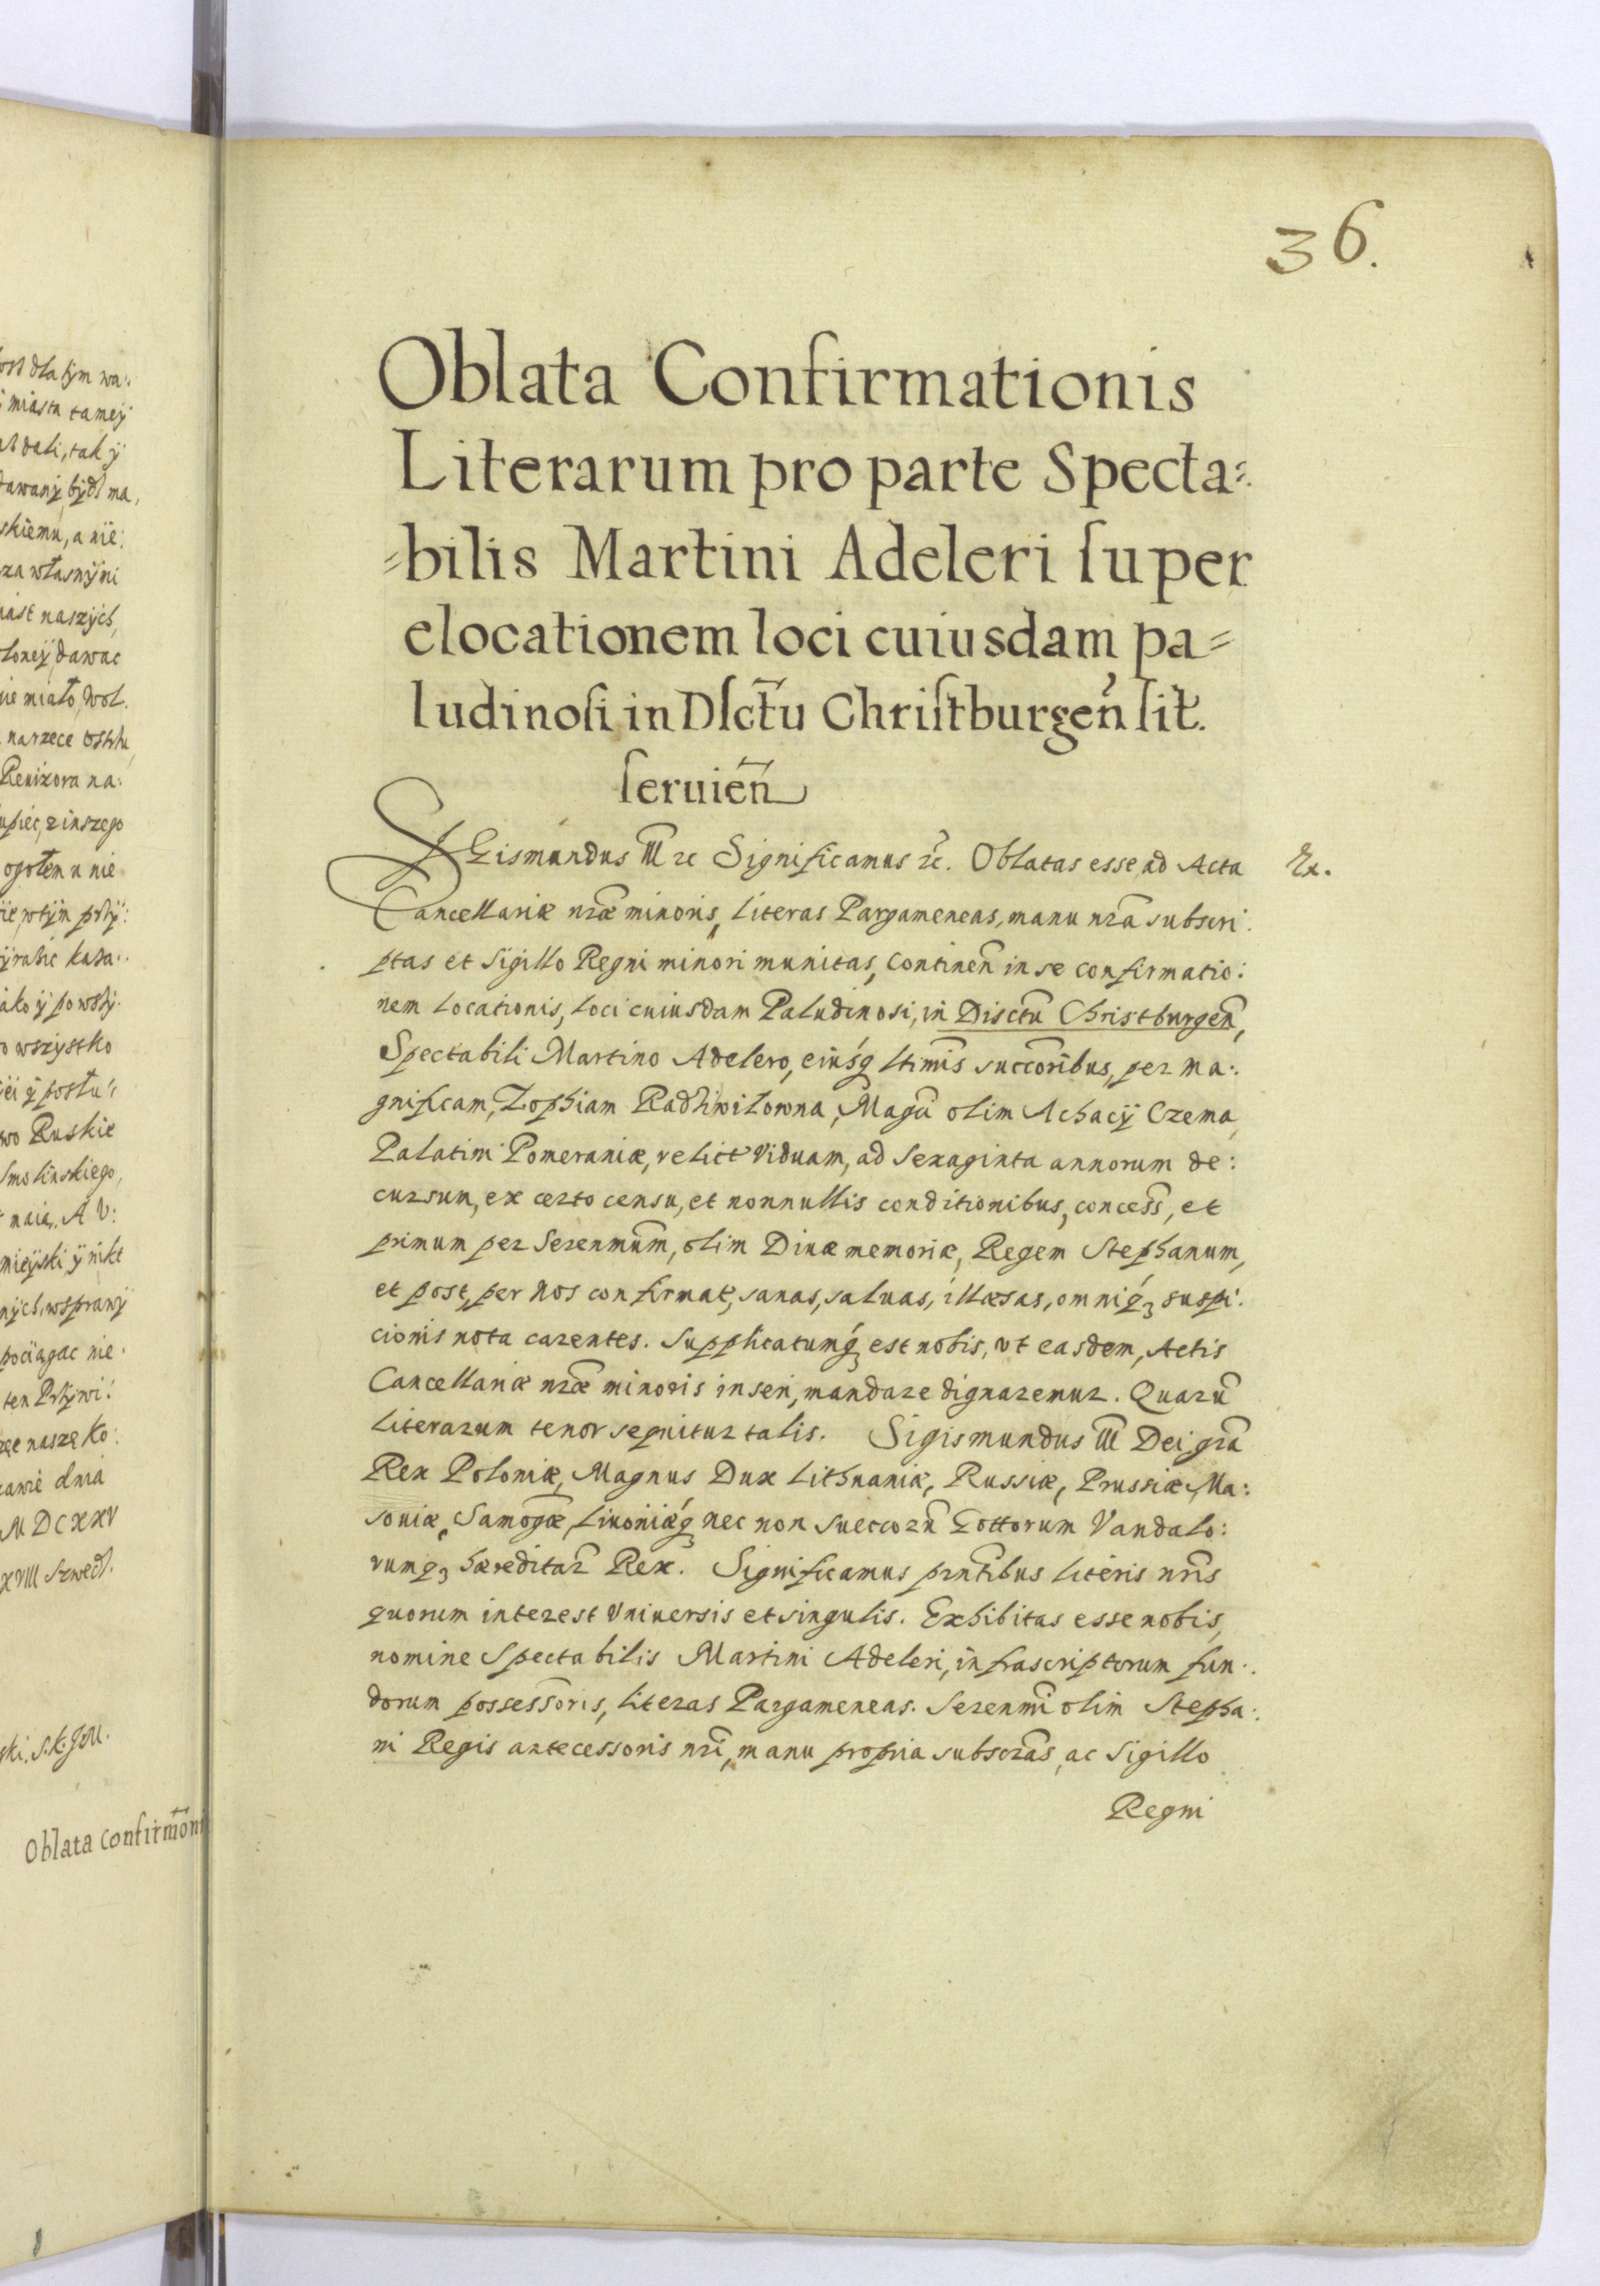 ost dla tym wa:
miasta tameÿ
dali, tak ÿ
dawanÿ bÿdź ma,
skiemu, a nie:
za własnÿmi
iast naszÿch,
loneÿ dawac
nie miało, wol.
narzece
Reuizora na:
upiec, z inszego
ogołem u nie
ÿrazic kaza:
iako ÿ powszÿ:
o wszystko
iei ÿ posłu:
wo Ruskie
Smolinskiego,
naią. A V:
mieÿski ÿ nikt
nÿch, w sprawÿ
pociągac nie:
ten Przÿwi:
zęc naszę Ko:
dnia
M DCXXV
XVIII Szwedz.
ski. S. K. JM.
Oblata confirm̄oni
36.
Oblata Confirmationis
Literarum pro parte Specta⸗
⸗bilis Martini Adeleri ſuper
elocationem loci cuiusdam pa⸗
ludinoſi in Dſct̄u Chriſtburgeñ ſit.
ſeruieñ
SIgismundus III ꝛc Significamus ꝛc. Oblatas esse ad Acta
Ex.
Cancellariæ nr̄æ minoris, Literas Pargameneas, manu nr̄a subscri:
ptas et Sigillo Regni minori munitas, Continen̄ in se confirmatio:
nem Locationis, Loci cuiusdam Paludinosi, in Disctū Christburgen̄,
Spectabili Martino Adelero, eiusq́ ltimis̄ succorībus, per Ma:
gnificam, Zophiam Radziwiłowna, Magcī olim Achacÿ Czema,
Palatini Pomeraniæ, relict Viduam, ad Sexaginta annorum de:
cursun, ex certo censu, et nonnullis conditionibus, concess̄, et
primum per Serenmūm, olim Diuæ memoriæ, Regem Stephanum,
et post, per Nos confirmat, sanas, saluas, illæsas, omniq́ꝫ suspi:
cionis nota carentes. Supplicatumq́ꝫ est nobis, vt easdem, Actis
Cancellariæ nr̄æ minoris inseri, mandare dignaremur. Quarū
Literarum tenor sequitur talis. Sigismundus III Dei gr̄a
Rex Poloniæ, Magnus Dux Lithuaniæ, Russiæ, Prussiæ, Ma:
souiæ, Samog̅æ, Liuoniæq́ꝫ nec non Sueccorū Gottorum Vandalo:
rumqꝫ hæreditar̄ Rex. Significamus prn̄tibus literis nrīs
quorum interest Vniuersis et singulis. Exhibitas esse nobis,
nomine Spectabilis Martini Adeleri, infrascriptorum fun:
dorum possess̄oris, literas Pargameneas. Serenmī olim Stepha:
ni Regis antecessoris nrī, manu propria subscrās, ac Sigillo
Regni